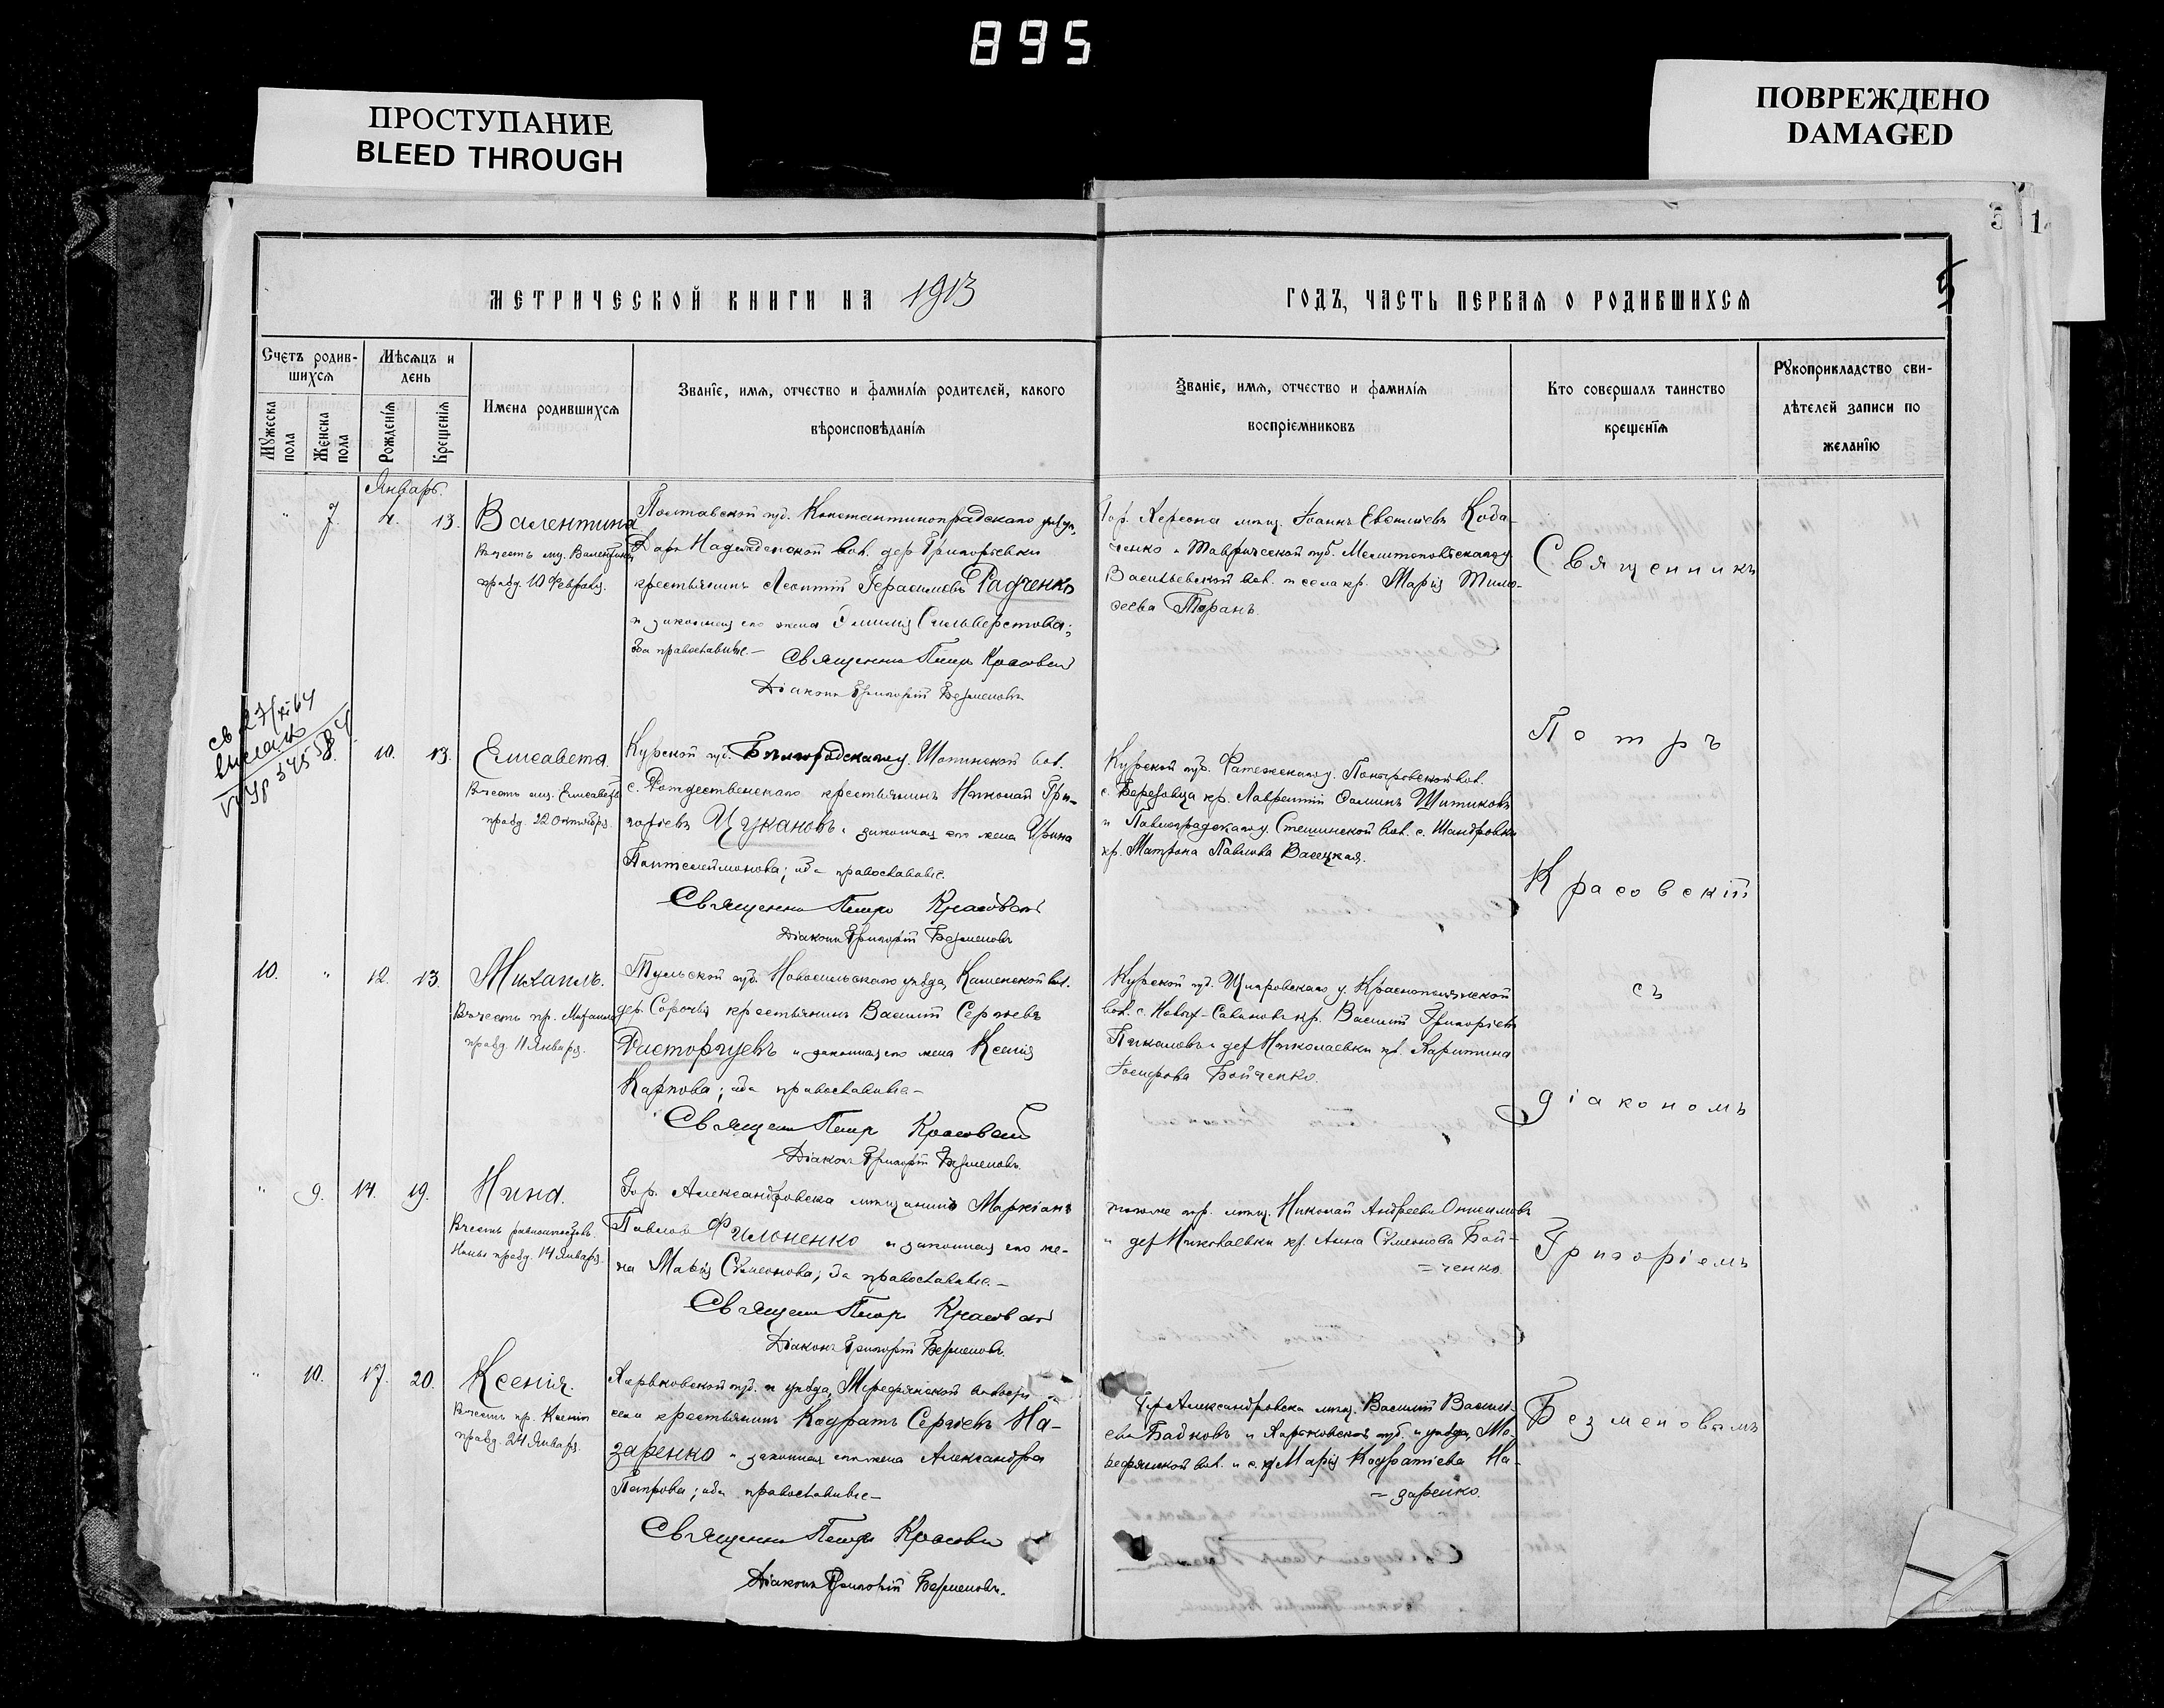 895
ПРОСТУПАНИЕ
BLEED THROUGH
ПОВРЕЖДЕНО
DAMAGED
МЕТРИЧЕСКОЙ КНИГИ НА 1913
ГОДЪ, ЧАСТЬ ПЕРВАЯ О РОДИВШИХСЯ
5
Счетъ родив-
шихся
Мужеска пола
Женска пола
Мѣсяцъ и
день
Рожденія
Крещенія
Имена родившихся
Званіе, имя, отчество и фамилія родителей, какого
вѣроисповѣданія
Званіе, имя, отчество и фамилія
воспріемниковъ
Кто совершалъ таинство
крещенія
Рукоприкладство сви-
дѣтелей записи по
желанію
Январь.
" 7 4. 13. Валентина
Въ честь муч. Валентины
празд. 10 Февраля.
Полтавской губ. Константиноградскаго уѣзда,
Надеждинской вол. дер. Григорьевки
крестьянинъ Леонтій Герасимовъ Радченко
и законная его жена Эмилія Сильверстова;
оба православные.— Священникъ Петръ Красовскій
Діаконъ Григорій Безменовъ
Гор. Херсона мѣщ. Іоаннъ Евфиміевъ Кода-
ченко и Таврической губ. Мелитопольскаго у.
Васильевской вол. и села кр. Марія Тимо-
феева Таранъ.
8. 10. 13. Елисавета.
Въ честь муч. Елисаветы
празд. 22 Октября.
Курской губ. Бѣлгородскаго у. Шопинской вол.
с. Рождественскаго крестьянинъ Николай Гри-
горьевъ Цукановъ и законная его жена Ирина
Пантелеймонова; оба православные.
Священникъ Петръ Красовскій
Діаконъ Григорій Безменовъ
Курской губ. Фатежскаго у. Покровской вол.
с. Березовца кр. Лаврентій Ѳоминъ Шитиковъ
и Павлоградскаго у. вол. с. Шандровки
кр. Матрона Павлова Васецкая.
10. " 12. 13. Михаилъ.
Въ честь пр. Михаила
празд. 11 Января.
Тульской губ. Новосильскаго уѣзда, Каменской вол.
дер. Сорочьи крестьянинъ Василій Сергѣевъ
Расторгуевъ и законная его жена Ксенія
Карпова; оба православные—
Священникъ Петръ Красовскій
Діаконъ Григорій Безменовъ.
Курской губ. Щигровскаго у. Краснополянской
вол. с. Новых-Савиновъ кр. Василій Григорьевъ
Пикаловъ и дер. Николаевки кр. Харитина
Іосифова Бойченко.
" 9. 14. 19. Нина.
Въ честь равноапостольн.
Нины празд. 14 Января.
Гор. Александровска мѣщанинъ Маркіанъ
Павловъ Фильненко и законная его же-
на Марія Симеонова; оба православные.—
Священникъ Петръ Красовскій
Діаконъ Григорій Безменовъ.
того же гор. мѣщ. Николай Андреевъ Онисимовъ
и дер. Николаевки кр. Анна Симеонова Бой-
=ченко.
" 10. 17. 20. Ксенія.
Въ честь пр. Ксеніи
празд. 24 Января.
Харьковской губ. и уѣзда, Мерефянской волости и
села крестьянинъ Кодратъ Сергіевъ На-
заренко и законная его жена Александра
Петрова; оба православные—
Священникъ Петръ Красовскій
Діаконъ Григорій Безменовъ.
Гор. Александровска мѣщ. Василій Василь-
евъ Бадковъ и Харьковской губ. и уѣзда, Ме-
рефянской вол. и с. кр. Марія Кодратіева На-
=заренко.
Священникъ
Петръ
Красовскій
съ
діакономъ
Григоріемъ
Безменовымъ